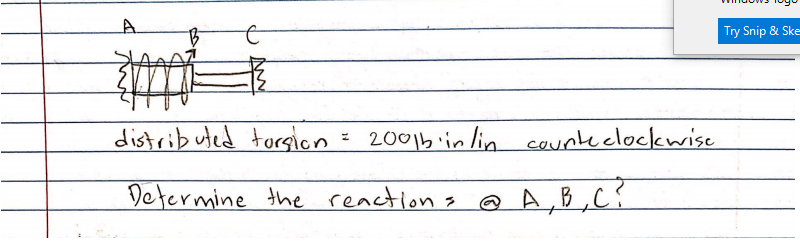 Try Snip & Ske
A
B
C
distributed torsion = 200 lb·in/in counteclockwise
Determine the reactions @ A, B, C?